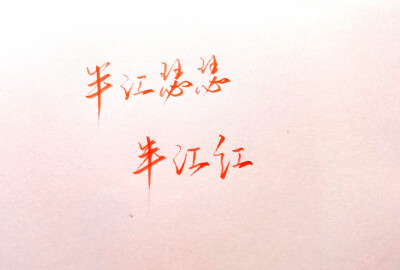 半江瑟瑟
半江红